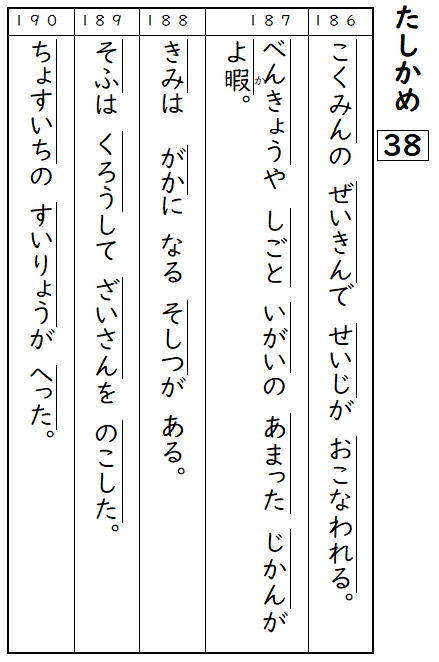 たしかめ
38
186
こくみんの ぜいきんで せいじが おこなわれる。
187
べんきょうや しごと いがいの あまった じかんが
よ暇。
か
188
きみは がかに なる そしつが ある。
189
そふは くろうして ざいさんを のこした。
190
ちょすいちの すいりょうが へった。